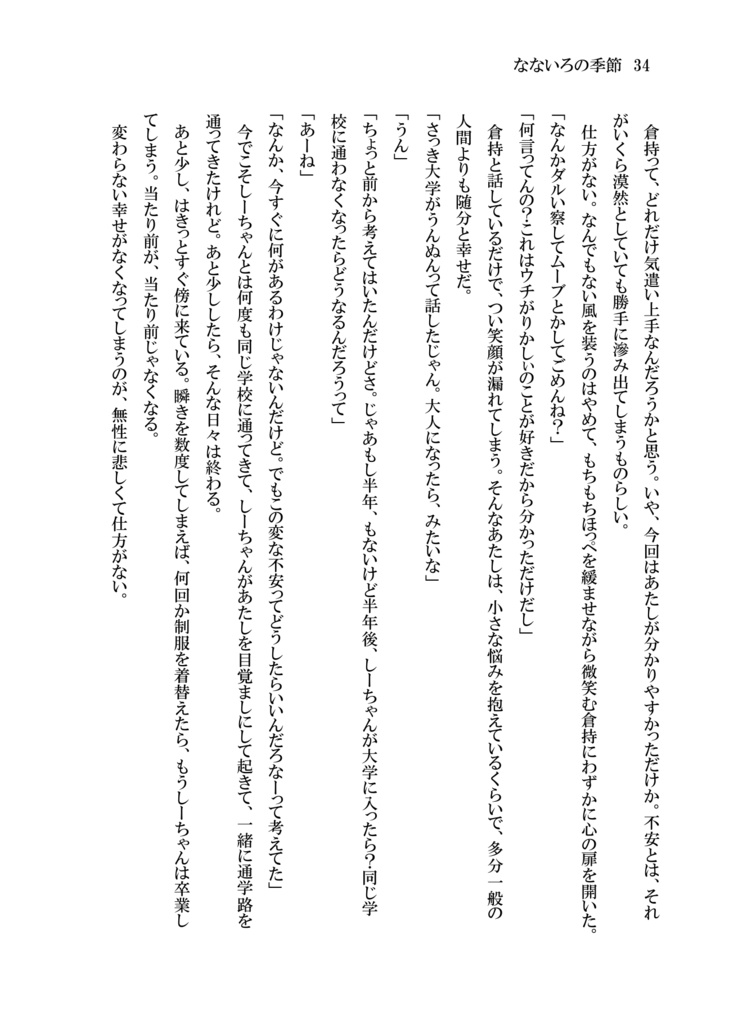 なないろの季節 34
倉持って、どれだけ気遣い上手なんだろうかと思う。いや、今回はあたしが分かりやすかっただけか。不安とは、それ
がいくら漠然としていても勝手に滲み出てしまうものらしい。
仕方がない。なんでもない風を装うのはやめて、もちもちほっぺを緩ませながら微笑む倉持にわずかに心の扉を開いた。
「なんかダルい察してムーブとかしてごめんね？」
「何言ってんの？これはウチがりかしぃのことが好きだから分かっただけだし」
倉持と話しているだけで、つい笑顔が漏れてしまう。そんなあたしは、小さな悩みを抱えているくらいで、多分一般の
人間よりも随分と幸せだ。
「さっき大学がうんぬんって話したじゃん。大人になったら、みたいな」
「うん」
「ちょっと前から考えてはいたんだけどさ。じゃあもし半年、もないけど半年後、しーちゃんが大学に入ったら？同じ学
校に通わなくなったらどうなるんだろうって」
「あーね」
「なんか、今すぐに何があるわけじゃないんだけど。でもこの変な不安ってどうしたらいいんだろなーって考えてた」
今でこそしーちゃんとは何度も同じ学校に通ってきて、しーちゃんがあたしを目覚ましにして起きて、一緒に通学路を
通ってきたけれど。あと少ししたら、そんな日々は終わる。
あと少し、はきっとすぐ傍に来ている。瞬きを数度してしまえば、何回か制服を着替えたら、もうしーちゃんは卒業し
てしまう。当たり前が、当たり前じゃなくなる。
変わらない幸せがなくなってしまうのが、無性に悲しくて仕方がない。